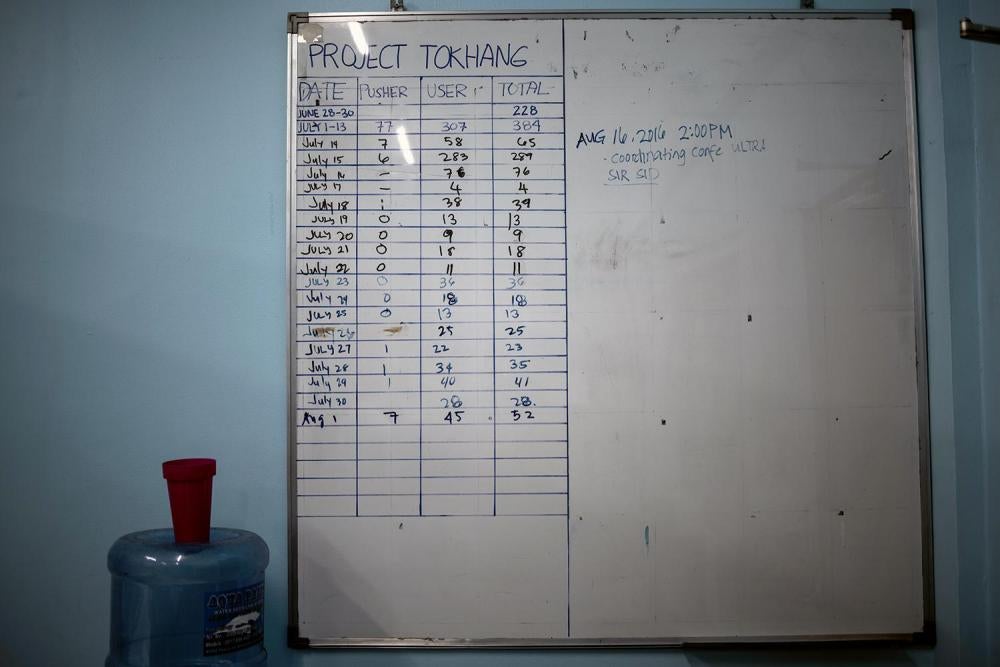 PROJECT TOKHANG
DATE PUSHER USER TOTAL
JUNE 28-30 228
JULY 1-13 77 307 384
July 14 7 58 65
July 15 6 283 289
July 16 — 76 76
JULY 17 — 4 4
July 18 1 38 39
JULY 19 0 13 13
JULY 20 0 9 9
JULY 21 0 18 18
July 22 0 11 11
JULY 23 0 36 36
July 24 0 18 18
JULY 25 0 13 13
July 26 — 25 25
JULY 27 1 22 23
July 28 1 34 35
July 29 1 40 41
July 30 28 28.
Aug 1 7 45 52
AUG 16, 2016 2:00PM
- coordinating confe ULTRA
SIR SID